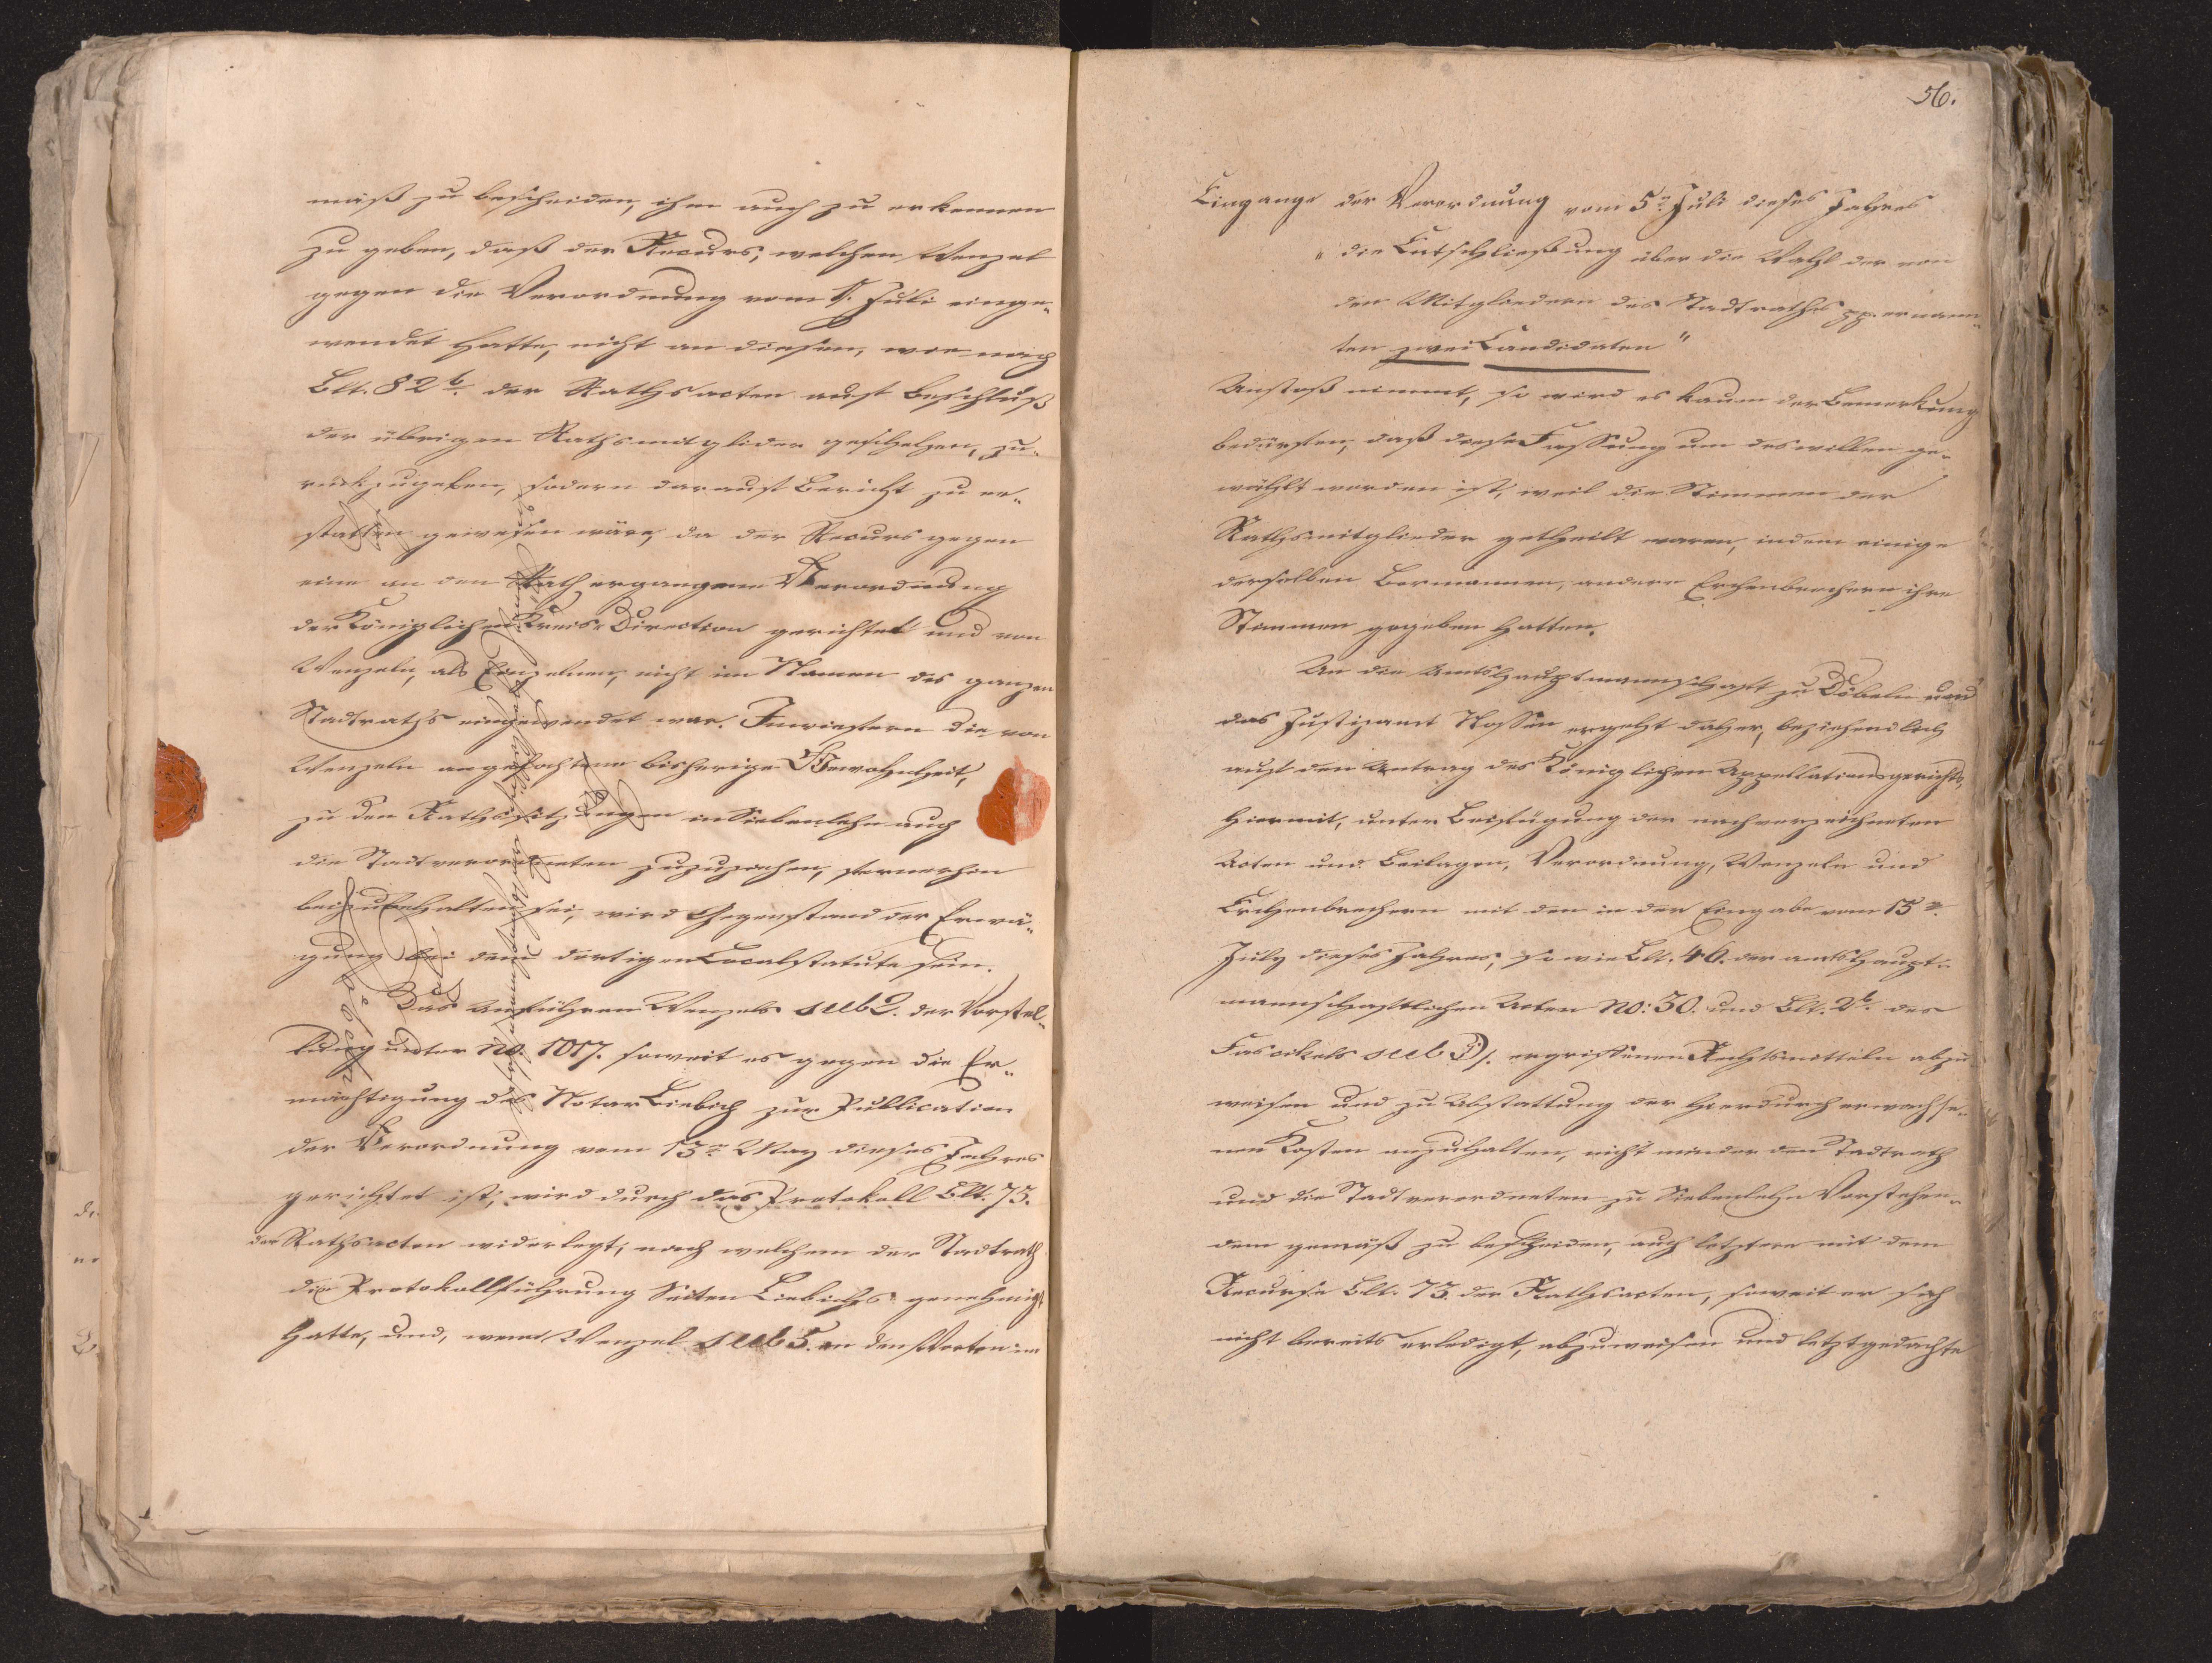 mäß zu bescheiden, ihm auch zu erkennen
zu geben, daß der Recurs, welchen Wenzel
gegen die Verordnung vom 5. Juli einge-
wendet hatte, nicht an diesen, wie nach
Blt. 82b. der Rathsacten auf Beschluß
der übrigen Rathsmitglider geschehen, zu-
rückzugeben, sodern darauf Bericht zu er-
statten gewesen wäre, da der Recurs gegen
eine an den Rath ergangene Verordnung
der Königlichen Kreis-Direction gerichtet und von
Wenzeln, als Einzelnen, nicht im Namen des ganzen
Stadtraths eingewendet war. Inwiefern die von
Wenzeln angefochtene bisherige Gewohnheit,
zu den Rathssitzungen in Siebenlehn auch
die Stadtverordneten zuzuziehen, fernerhin
beizubehalten sei, wird Gegenstand der Erwä-
gung bei dem dortigen Localstatute sein.
Das Anführen Wenzels sub 2. der Vorstel-
lung unter No. 1017. soweit es gegen die Er-
mächtigung des Notar Liebich zur Publication
der Verordnung vom 13n May dieses Jahres
gerichtet ist, wird durch das Protokoll Blt. 73.
der Rathsacten widerlegt, nach welchem der Stadtrath
die Protokollführung Seiten Liebichs genehmigt
hatte, und, wenn Wenzel sub 5. an den Worten im
56.
Eingange der Verordnung vom 5n Juli dieses Jahres
"die Entschließung über die Wahl der von
den Mitgliedern des Stadtraths pp. ernann-
ten zwei Candidaten"
Anstoß nimmt, so wird es kaum der Bemerkung
bedürfen, daß diese Fassung um deswillen ge-
wählt worden ist, weil die Stimmen der
Rathsmitglieder getheilt waren, indem einige
derselben Bormannen, andere Erchenbrechern ihre
Stimmen gegeben hatten.
An die Amtshauptmannschaft zu Döbeln und
das Justizamt Nossen ergeht daher, beziehendlich
auf den Antrag des Königlichen Appellationsgerichts,
hiermit, unter Beifügung der nachverzeichneten
Acten und Beilagen, Verordnung, Wenzeln und
Erchenbrechern mit den in der Eingabe vom 15n.
July dieses Jahres, sowie Blt. 46. der amtshaupt-
mannschaftlichen Acten No: 30. und Blt. 2b. des
Fascikels sub ergriffenen Rechtsmitteln abzu
weisen und zu Abstattung der hierdurch erwachse-
nen Kosten anzuhalten, nicht minder den Stadtrath
und die Stadtverordneten zu Siebenlehn Vorstehen-
dem gemäß zu bescheiden, auch letztere mit dem
Recurse Blt. 73. der Rathsacten, soweit er sich
nicht bereits erledigt, abzuweisen und letztgedachte